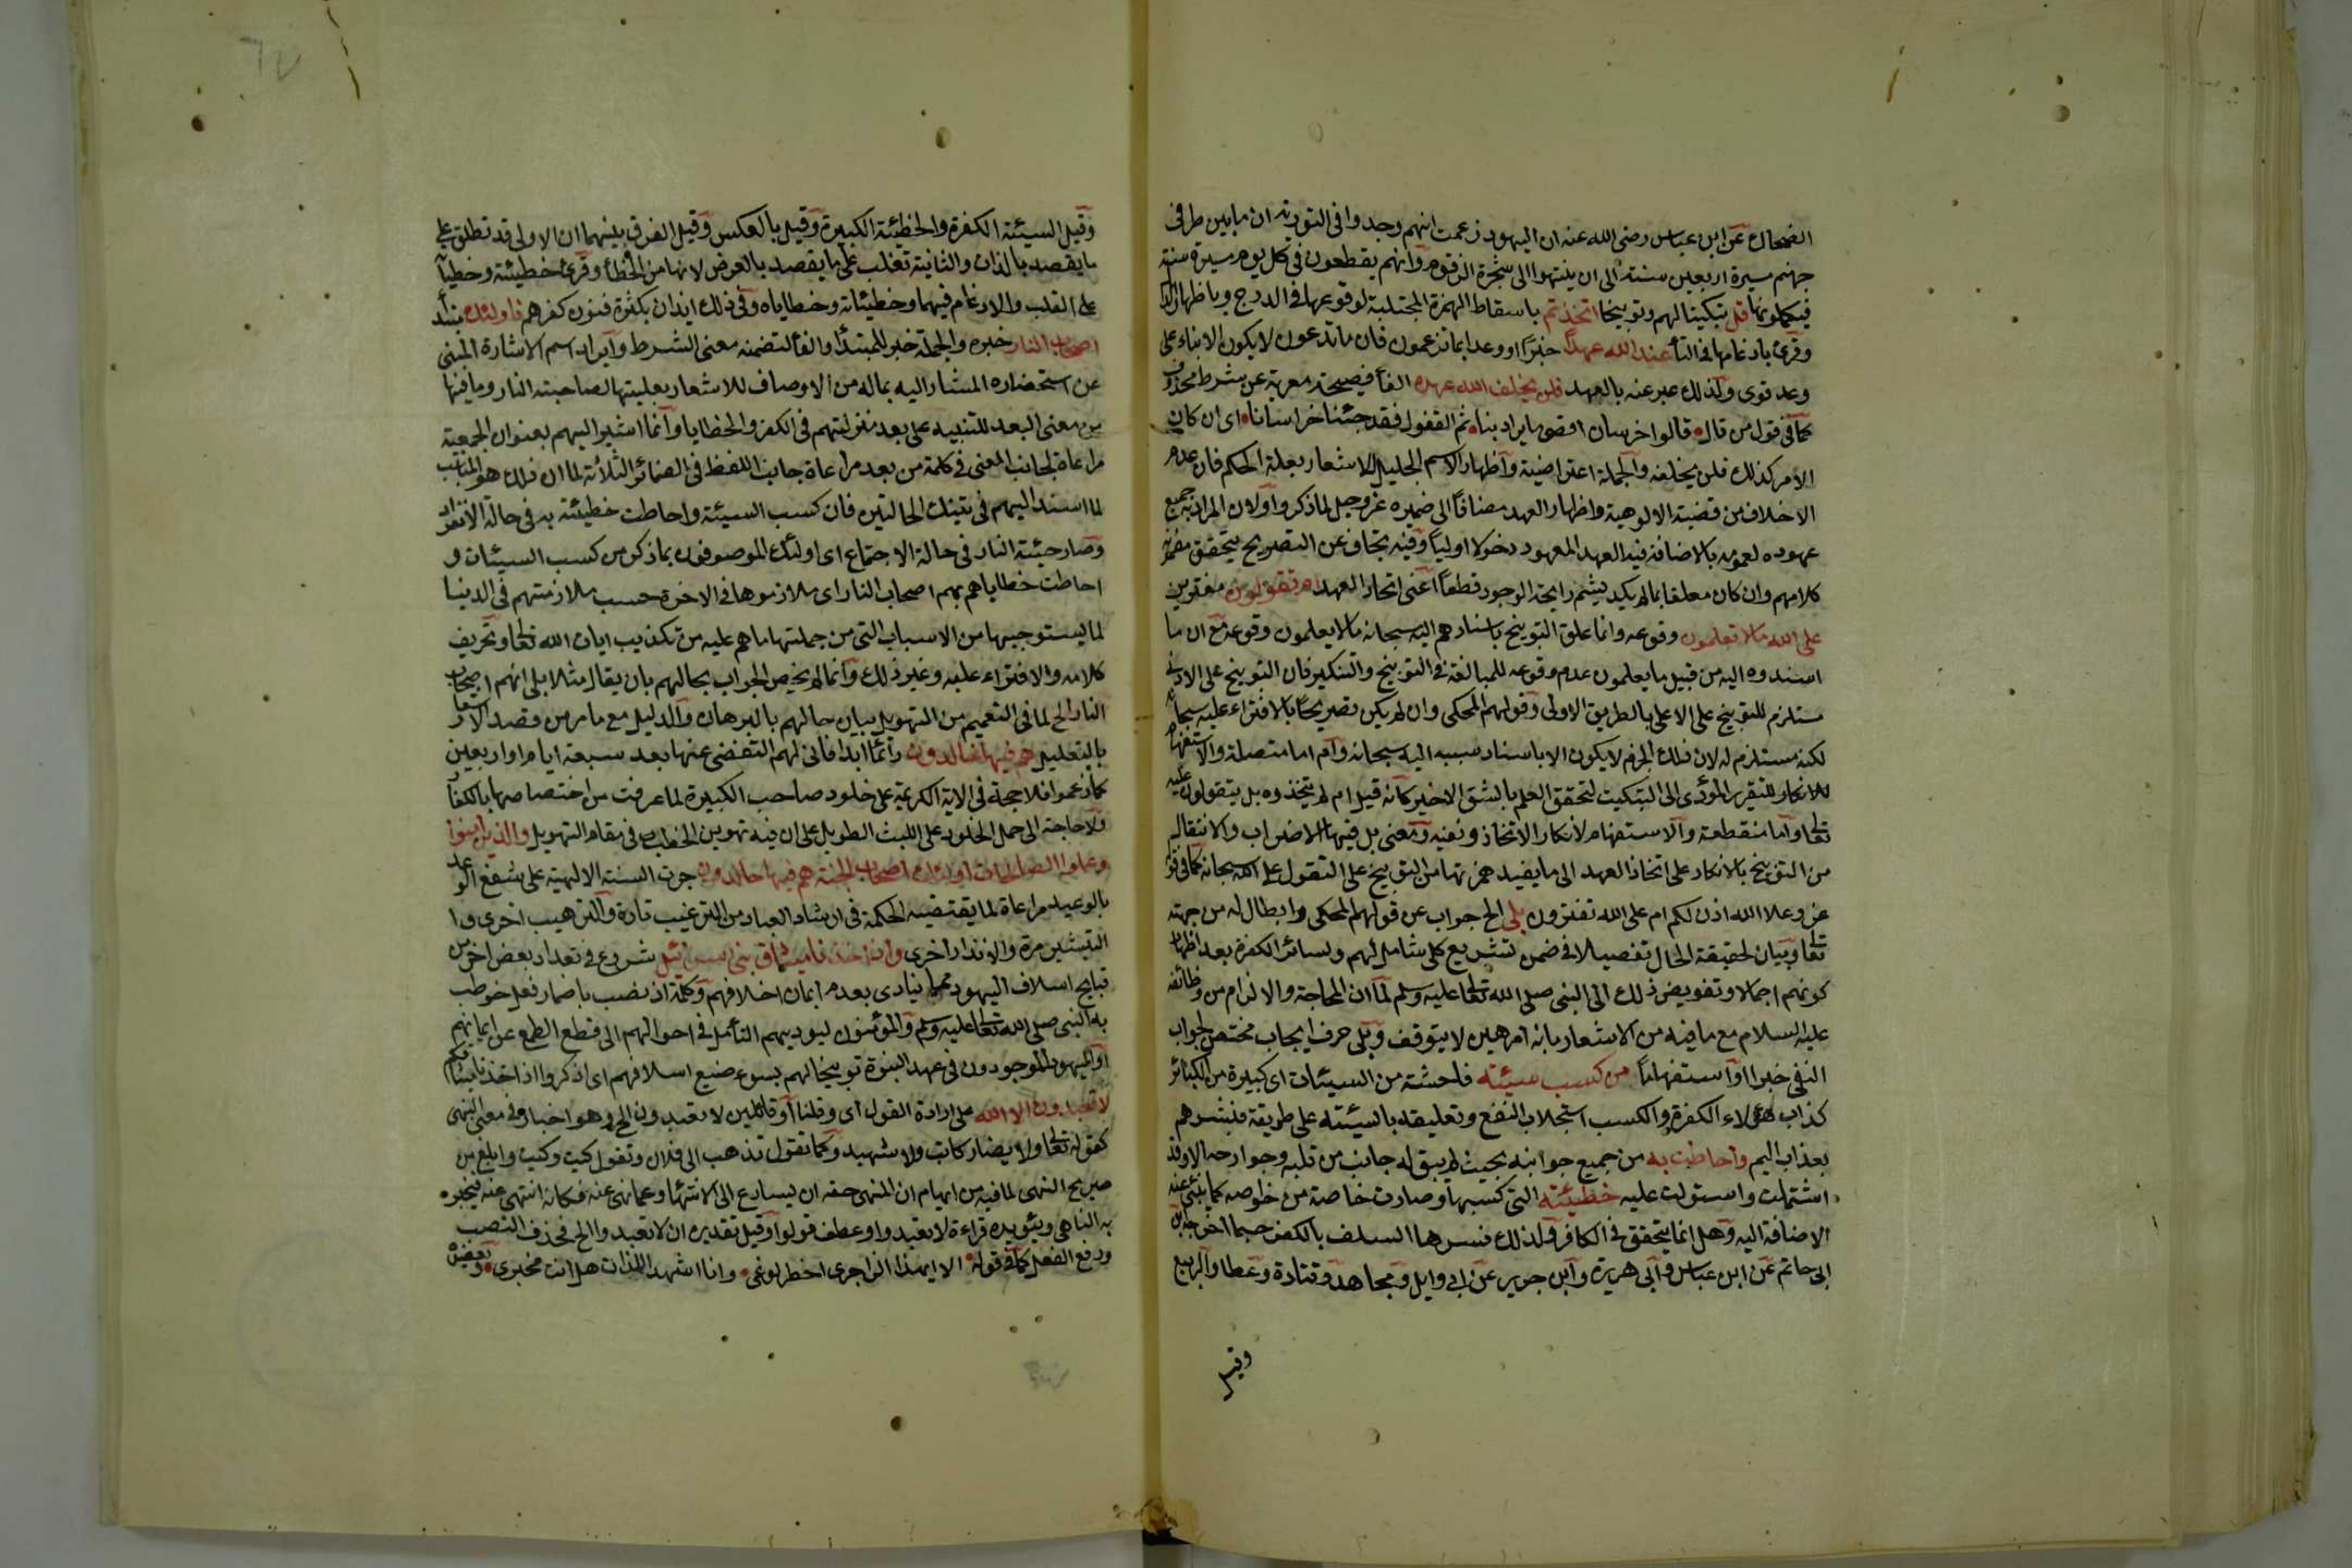 الضحاك عن ابن عباس رضى الله عنه ان اليهود زعمت انهم وجدوا فى التورية ان ما بين طرفى
جهنم مسيرة اربعين سنة الى ان ينتهوا الى شجرة الزقوم وانهم يقطعون فى كل يوم مسيرة سنة
فيكملونها قل تبكيتا لهم وتوبيخا اتخذتم باسقاط الهمزة المجتلبة لوقوعها فى الدرج وباظهار الذال
وقرئ بادغامها فى التاء عند الله عهدا خبرا او وعدا بما تزعمون فان ما تدعون لا يكون الا بناء على
وعد قوى ولذلك عبر عنه بالعهد فلن يخلف الله عهده الفاء فصيحة معربة عن شرط محذوف
كما فى قول من قال قالوا خراسان اقصى ما يراد بنا ثم القفول فقد جئنا خراسانا اى ان كان
الامر كذلك فلن يخلفه والجملة اعتراضية واظهار الاسم الجليل للاشعار بعلة الحكم فان عدم
الاخلاف من قضية الالوهية واظهار العهد مضافا الى ضميره عز وجل لما ذكر او لان المراد به جميع
عهوده لعمومه بالاضافة فيه العهد المعهود دخولا اوليا وفيه تجاف عن التصريح بتحقق مضمون
كلامهم وان كان معلقا بما لم يكد يشم رايحة الوجود قطعا اعنى اتخاذ العهد ام تقولون مفترين
على الله ما لا تعلمون وقوعه وانما علق التوبيخ باسنادهم اليه سبحانه ما لا يعلمون وقوعه مع ان ما
اسندوه اليه من قبيل ما يعلمون عدم وقوعه للمبالغة فى التوبيخ والتنكير فان التوبيخ على الادنى
مستلزم للتوبيخ على الاعلى بالطريق الاولى وقولهم المحكى وان لم يكن تصريحا بالافتراء عليه سبحانه
لكنه مستلزم له لان ذلك الجزم لا يكون الا باسناد سببه اليه سبحانه وام اما متصلة والاستفهام
للانكار للتقرير المؤدى الى التبكيت لتحقق العلم بالشق الاخير كانه قيل ام لم تتخذوه بل يتقولون عليه
تعالى واما منقطعة والاستفهام لانكار الاتخاذ ونفيه ومعنى بل فيها الاضراب والانتقال
من التوبيخ بالانكار على اتخاذ العهد الى ما يفيد همزتها من التوبيخ على التقول على الله سبحانه كما فى قوله
عز وعلا الله اذن لكم ام على الله تفترون بلى الخ جواب عن قولهم المحكى وابطال له من جهته
تعالى وبيان لحقيقة الحال تفصيلا فى ضمن تشريع كلى شامل لهم ولسائر الكفرة بعد اظهار
كونهم اجمالا وتفويض ذلك الى النبى صلى الله تعالى عليه وسلم لما ان المحاجة والالزام من وظائفه
عليه السلام مع ما فيه من الاشعار بانه امر هين لا يتوقف وبلى حرف ايجاب مختص بجواب
النفى خبرا او استفهاما من كسب سيئة فاحشة من السيئات اى كبيرة من الكبائر
كذاب هؤلاء الكفرة والكسب استجلاب النفع وتعليقه بالسيئة على طريقة فبشرهم
بعذاب اليم واحاطت به من جميع جوانبه بحيث لم يبق له جانب من قلبه وجوارحه الا وقد
اشتملت واستولت عليه خطيئته التى كسبها وصارت خاصة من خلوصه كما ينبئ عنه
الاضافة اليه وهل انما يتحقق فى الكافر ولذلك فسرها السلف بالكفر حسبما اخرجه ابن
ابى حاتم عن ابن عباس وابى هريرة وابن جرير عن ابى وايل ومجاهد وقتادة وعطا والربيع
وقيل
وقيل السيئة الكفرة والخطيئة الكبيرة وقيل بالعكس وقيل الفرق بينهما ان الاولى قد تطلق على
ما يقصد بالذات والثانية تغلب على ما يقصد بالعرض لانها من الخطأ وقرئ خطيئة وخطيآ
على القلب والادغام فيهما وخطيئاته وخطاياه وفى ذلك ايذان بكثرة فنون كفرهم فاولئك مبتدأ
اصحاب النار خبره والجملة خبر للمبتدأ والفاء لتضمنه معنى الشرط وايراد اسم الاشارة المبنى
عن استحضاره المشار اليه بما له من الاوصاف للاشعار بعليتها لصاحبته النار وما فيها
من معنى البعد للتنبيه على بعد منزلتهم فى الكفر والخطايا وانما اشير اليهم بعنوان الجمعية
مراعاة لجانب المعنى فى كلمة من بعد مراعاة جانب اللفظ فى الضمائر الثلاثة لما ان ذلك هو المناسب
لما اسند اليهم فى تينك الحالتين فان كسب السيئة واحاطت خطيئته به فى حالة الانفراد
وصارحيئة النار فى حالة الاجتماع اى اولئك الموصوفون بما ذكر من كسب السيئات و
احاطت خطاياهم بهم اصحاب النار اى ملازموها فى الاخرة حسب ملازمتهم فى الدنيا
لما يستوجبها من الاسباب التى من جملتها ما هم عليه من تكذيب ايات الله تعالى وتحريف
كلامه والافتراء عليه وغير ذلك وانما لم يخص الجواب بحالهم بان يقال مثلا بلى انهم اصحاب
النار الخ لما فى التعميم من التهويل ببيان حالهم بالبرهان والدليل مع ما مر من قصد الاشعار
بالتعليل هم فيها خالدون دائما ابدا فانى لهم التفصى عنها بعد سبعة ايام او اربعين
كما زعموا فلا حجة فى الاية الكريمة على خلود صاحب الكبيرة لما عرفت من اختصاصها بالكفار
ولا حاجة الى حمل الخلود على اللبث الطويل على ان فيه تهوين الخطب فى مقام التهويل والذين امنوا
وعملوا الصالحات اولئك اصحاب الجنة هم فيها خالدون جرت السنة الالهية على شفع الوعد
بالوعيد مراعاة لما يقتضيه الحكمة فى ارشاد العباد من الترغيب تارة والترهيب اخرى وا
التبشير مرة والانذار اخرى واذ اخذنا ميثاق بنى اسرائيل شروع فى تعداد بعض اخر من
قبايح اسلاف اليهود مما ينادى بعدم ايمان اخلافهم وكلمة اذ نصب باضمار فعل خوطب
به النبى صلى الله تعالى عليه وسلم والمؤمنون ليوديهم التأمل فى احوالهم الى قطع الطمع عن ايمانهم
او اليهود الموجودون فى عهد النبوة توبيخا لهم بسوء صنيع اسلافهم اى اذكروا اذ اخذنا ميثاقهم
لا تعبدون الا الله على ارادة القول اى وقلنا او قائلين لا تعبدون الخ وهو اخبار فى معنى النهى
كقوله تعالى ولا يضار كاتب ولا شهيد وكما تقول تذهب الى فلان وتقول كيت وكيت وابلغ من
صريح النهى لما فيه من ايهام ان المنهى حقه ان يسارع الى الانتهاء وعما نهى عنه فكانه انتهى عنه فيخبر
به الناهى ويؤيده قراءة لا تعبدوا وعطف قولوا وقيل تقديره ان لا تعبدوا الخ فحذف الناصب
ورفع الفعل كما فى قوله الا ايهذا الزاجرى احضر الوغى وانا اشهد اللذات هل انت مخلدى